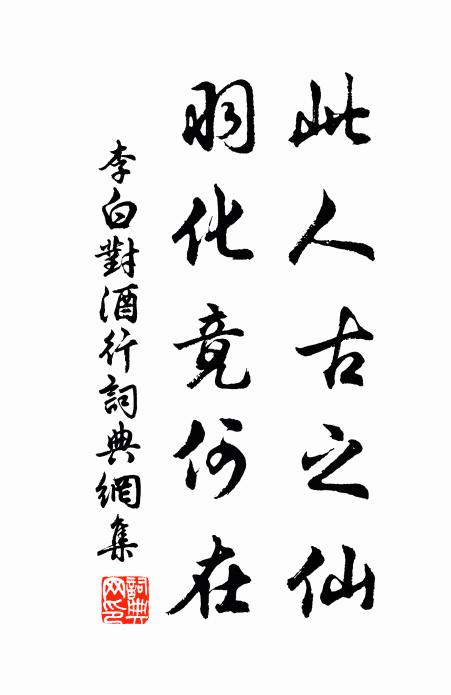 此人古之仙
羽化竟何在
李白對酒行詞典網集
詞典
网印